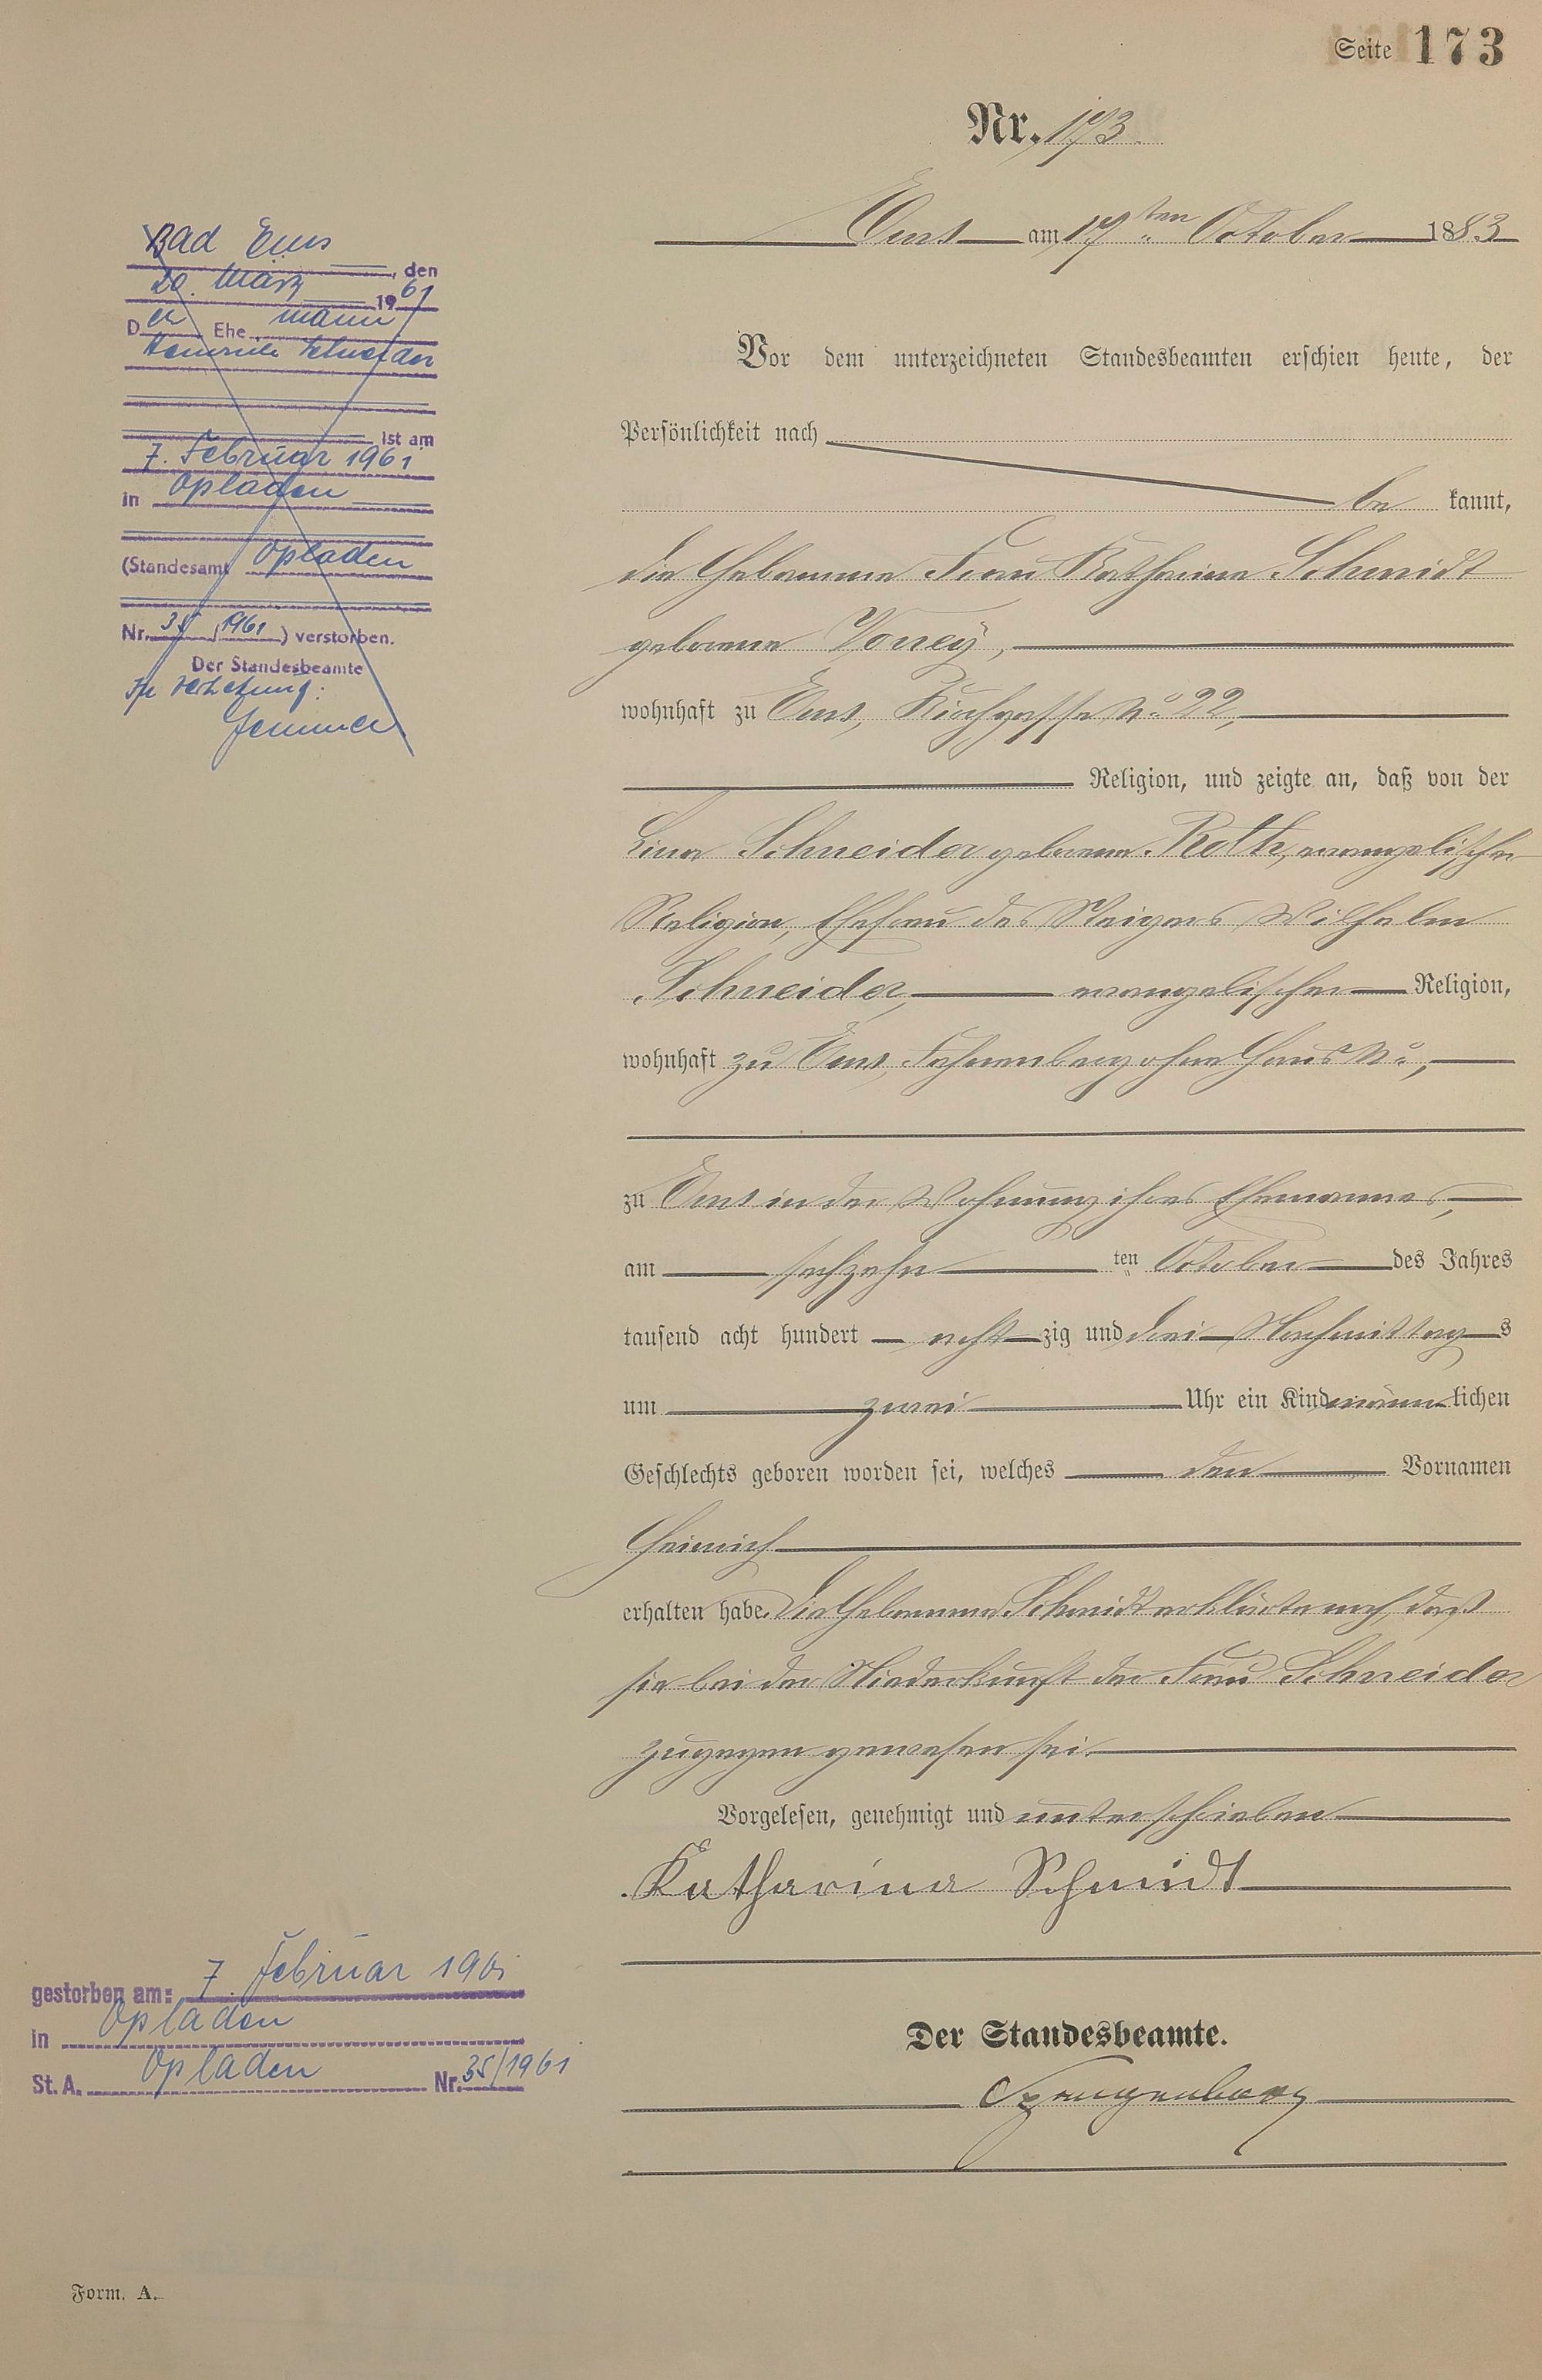 Seite 173
Nr. 173.
Ems am 17ten October 1883
Vor dem unterzeichneten Standesbeamten erschien heute, der
Persönlichkeit nach
be kannt,
die Hebamme Frau Katharina Schmidt
geborene Vorrey,
wohnhaft zu Ems, Kirchgasse No 22,
Religion, und zeigte an, daß von der
Lina Schneider geborene Roth, evangelischer
Religion, Ehefrau des Steigers Wilhelm
Schneider, evangelischer Religion,
wohnhaft zu Ems, Fahnenberg ohne Haus No,
zu Ems in der Wohnung ihres Ehemannes,
am sechzehn ten October des Jahres
tausend acht hundert acht zig und drei Nachmittag s
um zwei Uhr ein Kind männ lichen
Geschlechts geboren worden sei, welches den Vornamen
Heinrich
erhalten habe. Die Hebamme Schmidt erklärte noch, daß
sie bei der Niederkunft der Frau Schneider
zugegen gewesen sei.
Vorgelesen, genehmigt und unterschrieben
Katharina Schmidt
Der Standesbeamte.
Spangenberg
Bad Ems, den
20. März 1961
D er Ehe mann
Heinrich Schneider
ist am
7. Februar 1961
in Opladen
(Standesamt Opladen
Nr. 35 / 1961) verstorben.
Der Standesbeamte
In Vertretung:
gestorben am: 7. Februar 1961
in Opladen
St. A. Opladen Nr. 35/1961
Form. A.